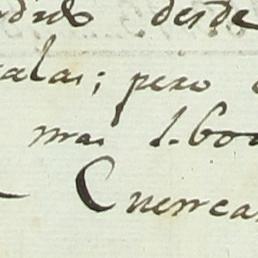 desde
alas; pero
mas 1.600
Cuenca